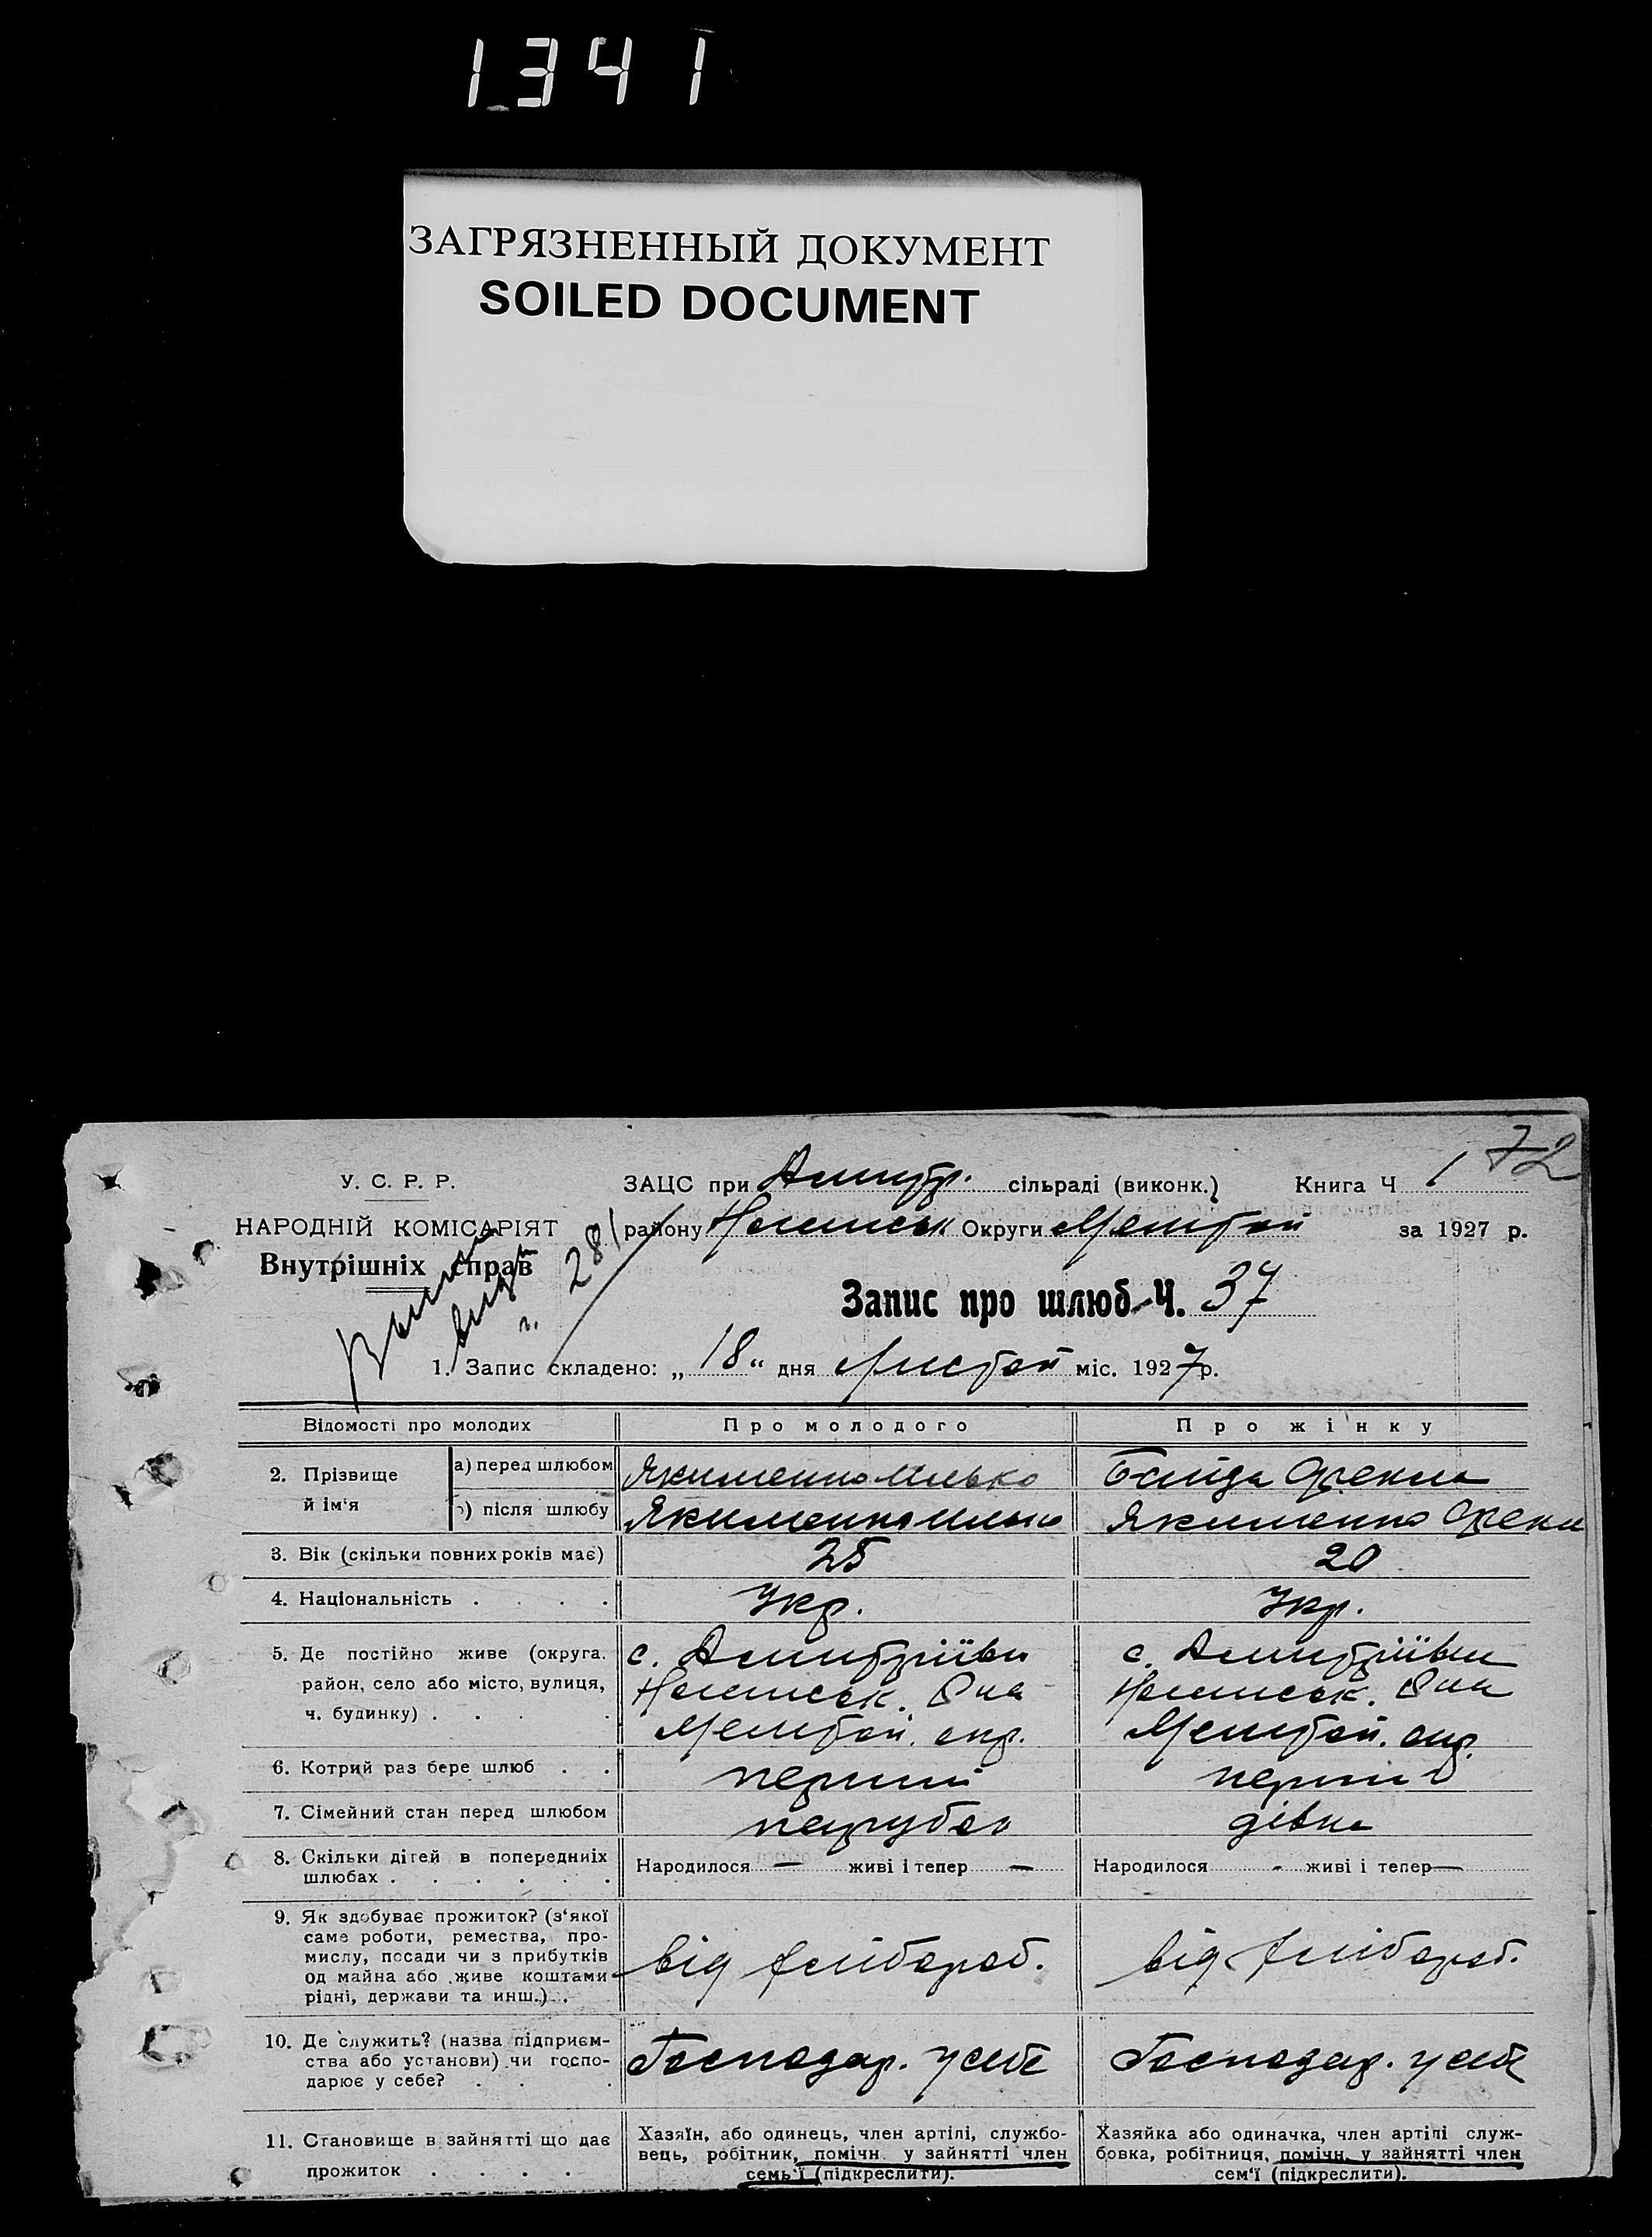 1341
ЗАГРЯЗНЕННЫЙ ДОКУМЕНТ
SOILED DOCUMENT
72
У. С. Р. Р.
НАРОДНІЙ КОМІСАРІЯТ
Внутрішніх справ
281
ЗАЦС при Дмитр. сільраді (виконк.) Книга Ч 1
району Округи Мелітоп за 1927 р.
Запис про шлюб Ч. 37
1. Запис складено: „18“ дня листоп міс. 1927 р.
Відомості про молодих Про молодого Про жінку
2. Прізвище й ім‘я
а) перед шлюбом Якименко Илько Байда Фекла
б) після шлюбу Якименко Илько Якименко Фекл
3. Вік (скільки повних років має) 25 20
4. Національність . . . . Укр. Укр.
5. Де постійно живе (округа, район, село або місто, вулиця, ч. будинку) . . . .
с. Дмитріївки
Мелітоп. окр.
с. Дмитріївки
Мелітоп. окр.
6. Котрий раз бере шлюб . . перший перший
7. Сімейний стан перед шлюбом парубок дівка
8. Скільки дітей в попередниіх
шлюбах . . . . . .
Народилося — живі і тепер —
Народилося - живі і тепер —
9. Як здобуває прожиток? (з‘якої
саме роботи, ремества, про-
мислу, посади чи з прибутків
од майна або живе коштами
рідні, держави та инш.) . .
від хлібороб.
від хлібороб.
10. Де служить? (назва підприєм-
ства або установи) чи госпо-
дарює у себе? . . .
Господар. у себе
Господар. у себе
11. Становище в зайнятті що дає
прожиток . . . .
Хазяїн, або одинець, член артілі, службо-
вець, робітник, помічн. у зайнятті член
семь‘ї (підкреслити).
Хазяйка або одиначка, член артілі служ-
бовка, робітниця, помічн. у зайнятті член
сем‘ї (підкреслити).